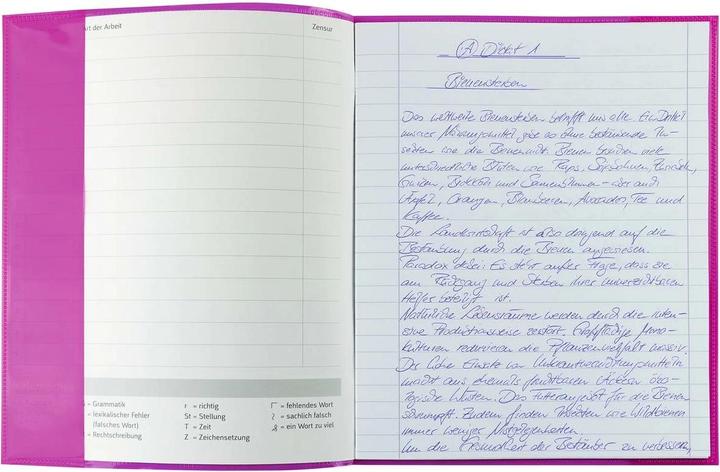 Art der Arbeit Zensur
= Grammatik
= lexikalischer Fehler
(falsches Wort)
= Rechtschreibung
r = richtig
St = Stellung
T = Zeit
Z = Zeichensetzung
Γ = fehlendes Wort
= sachlich falsch
= ein Wort zu viel
A Diktat 1
Bienensterben
Das weltweite Bienensterben betrifft uns alle. Ein Drittel
unserer Nahrungsmittel gäbe es ohne bestäubende In-
sekten wie die Bienen nicht. Bienen bestäuben viele
unterschiedliche Blüten wie Raps, Sojabohnen,
Gurken, und Sonnenblumen – aber auch
Äpfel, Orangen, Blaubeeren, Avocados, Tee und
Kaffee.
Die Landwirtschaft ist also dringend auf die
Bestäubung durch die Bienen angewiesen.
Paradox dabei: Es steht außer Frage, dass sie
am Rückgang und Sterben ihrer unverzichtbaren
Helfer beteiligt ist.
Natürliche Lebensräume werden durch die inten-
sive Produktionsweise zerstört. Großflächige Mono-
kulturen reduzieren die Pflanzenvielfalt massiv.
Der hohe Einsatz von Unkrautvernichtungsmitteln
macht aus ehemals fruchtbaren Äckern öko-
logische Wüsten. Das Futterangebot für die Bienen
schrumpft. Zudem finden Insekten wie Wildbienen
immer weniger Nistmöglichkeiten.
Um die Gesundheit der Bestäuber zu verbessern,